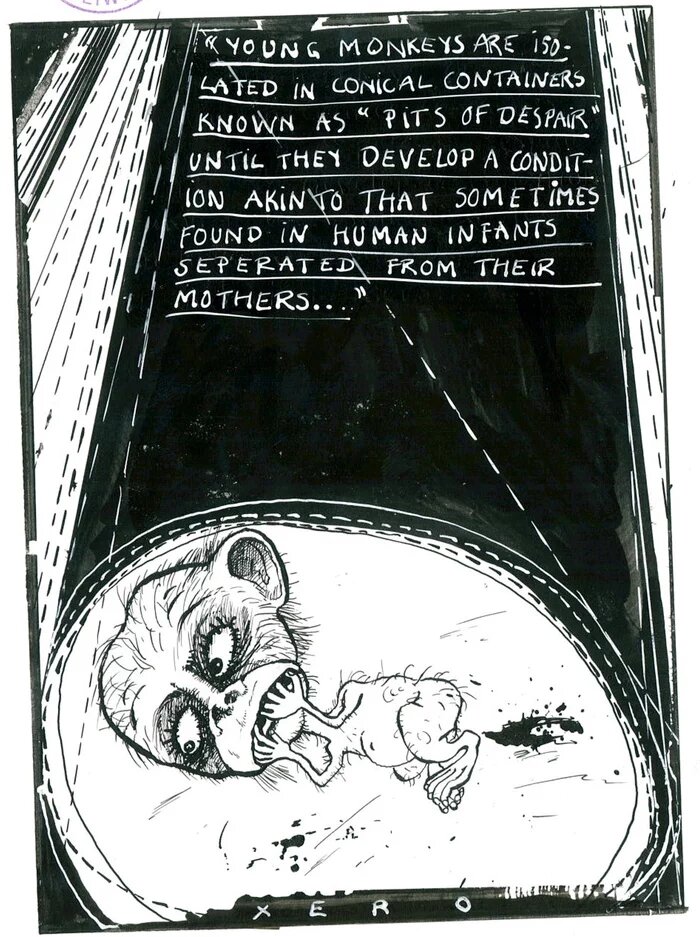 “YOUNG MONKEYS ARE ISO-
LATED IN CONICAL CONTAINERS
KNOWN AS “PITS OF DESPAIR”
UNTIL THEY DEVELOP A CONDIT-
ION AKIN TO THAT SOMETIMES
FOUND IN HUMAN INFANTS
SEPERATED FROM THEIR
MOTHERS....”
XERO